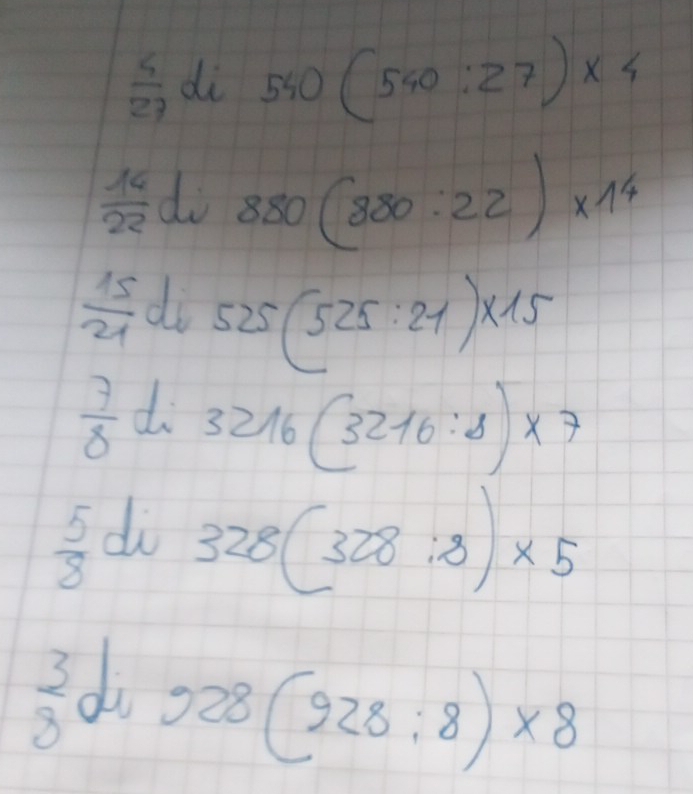 4/27 di 540 (540 : 27) x 4
14/22 di 880 (880 : 22) x 14
15/21 di 525 (525 : 21) x 15
7/8 di 3216 (3216 : 8) x 7
5/8 di 328 (328 : 8) x 5
3/8 di 928 (928 : 8) x 8